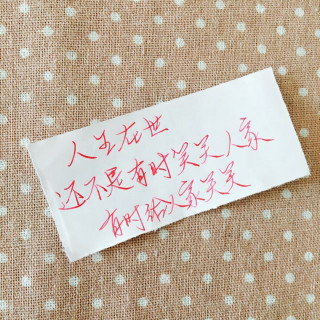 人生在世
还不是有时笑笑人家
有时给人家笑笑